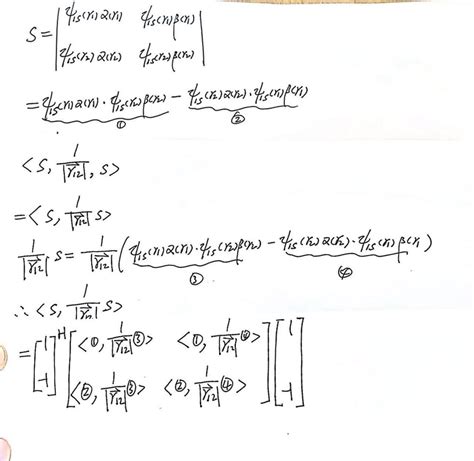 S = | ψ₁ₛ(r₁) α(r₁) ψ₁ₛ(r₁) β(r₁) |
| ψ₁ₛ(r₂) α(r₂) ψ₁ₛ(r₂) β(r₂) |
= ψ₁ₛ(r₁) α(r₁) · ψ₁ₛ(r₂) β(r₂) − ψ₁ₛ(r₂) α(r₂) · ψ₁ₛ(r₁) β(r₁)
① ②
< S, 1/|r⃗₁₂|, S >
= < S, 1/|r⃗₁₂| S >
1/|r⃗₁₂| S = 1/|r⃗₁₂| ( ψ₁ₛ(r₁) α(r₁) · ψ₁ₛ(r₂) β(r₂) − ψ₁ₛ(r₂) α(r₂) · ψ₁ₛ(r₁) β(r₁) )
③ ④
∴ < S, 1/|r⃗₁₂| S >
= [ 1 ]ᴴ [ < ①, 1/|r⃗₁₂| ③ > < ①, 1/|r⃗₁₂| ④ > ] [ 1 ]
[ -1 ] [ < ②, 1/|r⃗₁₂| ③ > < ②, 1/|r⃗₁₂| ④ > ] [ -1 ]